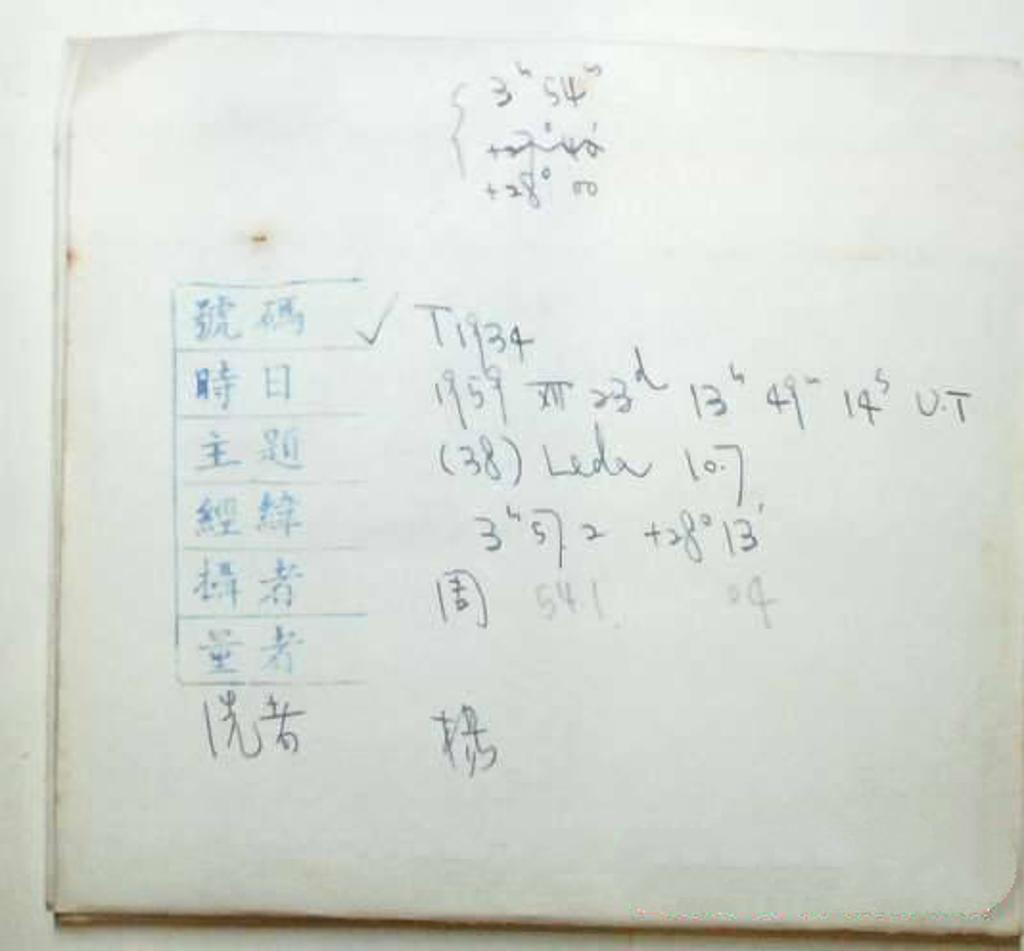 3ʰ 54ᵐ
+27° 40′
+28° 00
號碼 ✓ T1934
時日 1959 XII 23ᵈ 13ʰ 49ᵐ 14ˢ U.T
主題 (38) Leda 10.7
經緯 3ʰ 57.2 +28° 13′
攝者 周 54.1 04
量者
洗者 楊